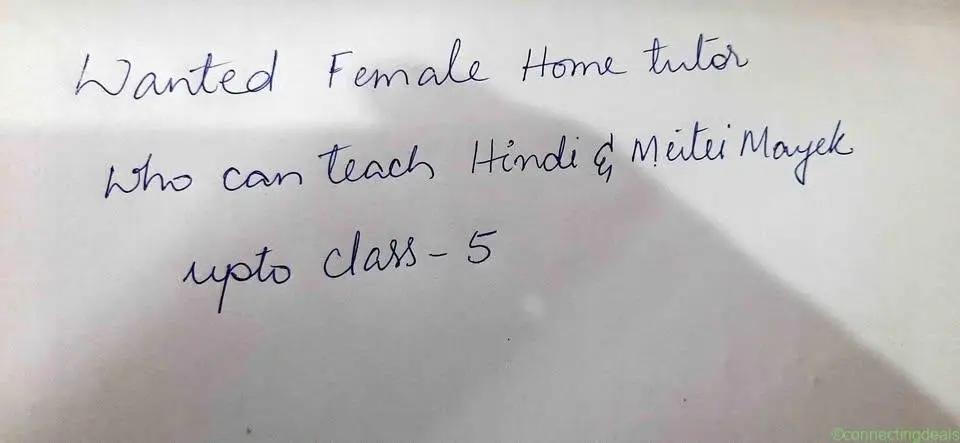 Wanted Female Home tutor
who can teach Hindi & Meitei Mayek
upto class - 5
©connectingdeals